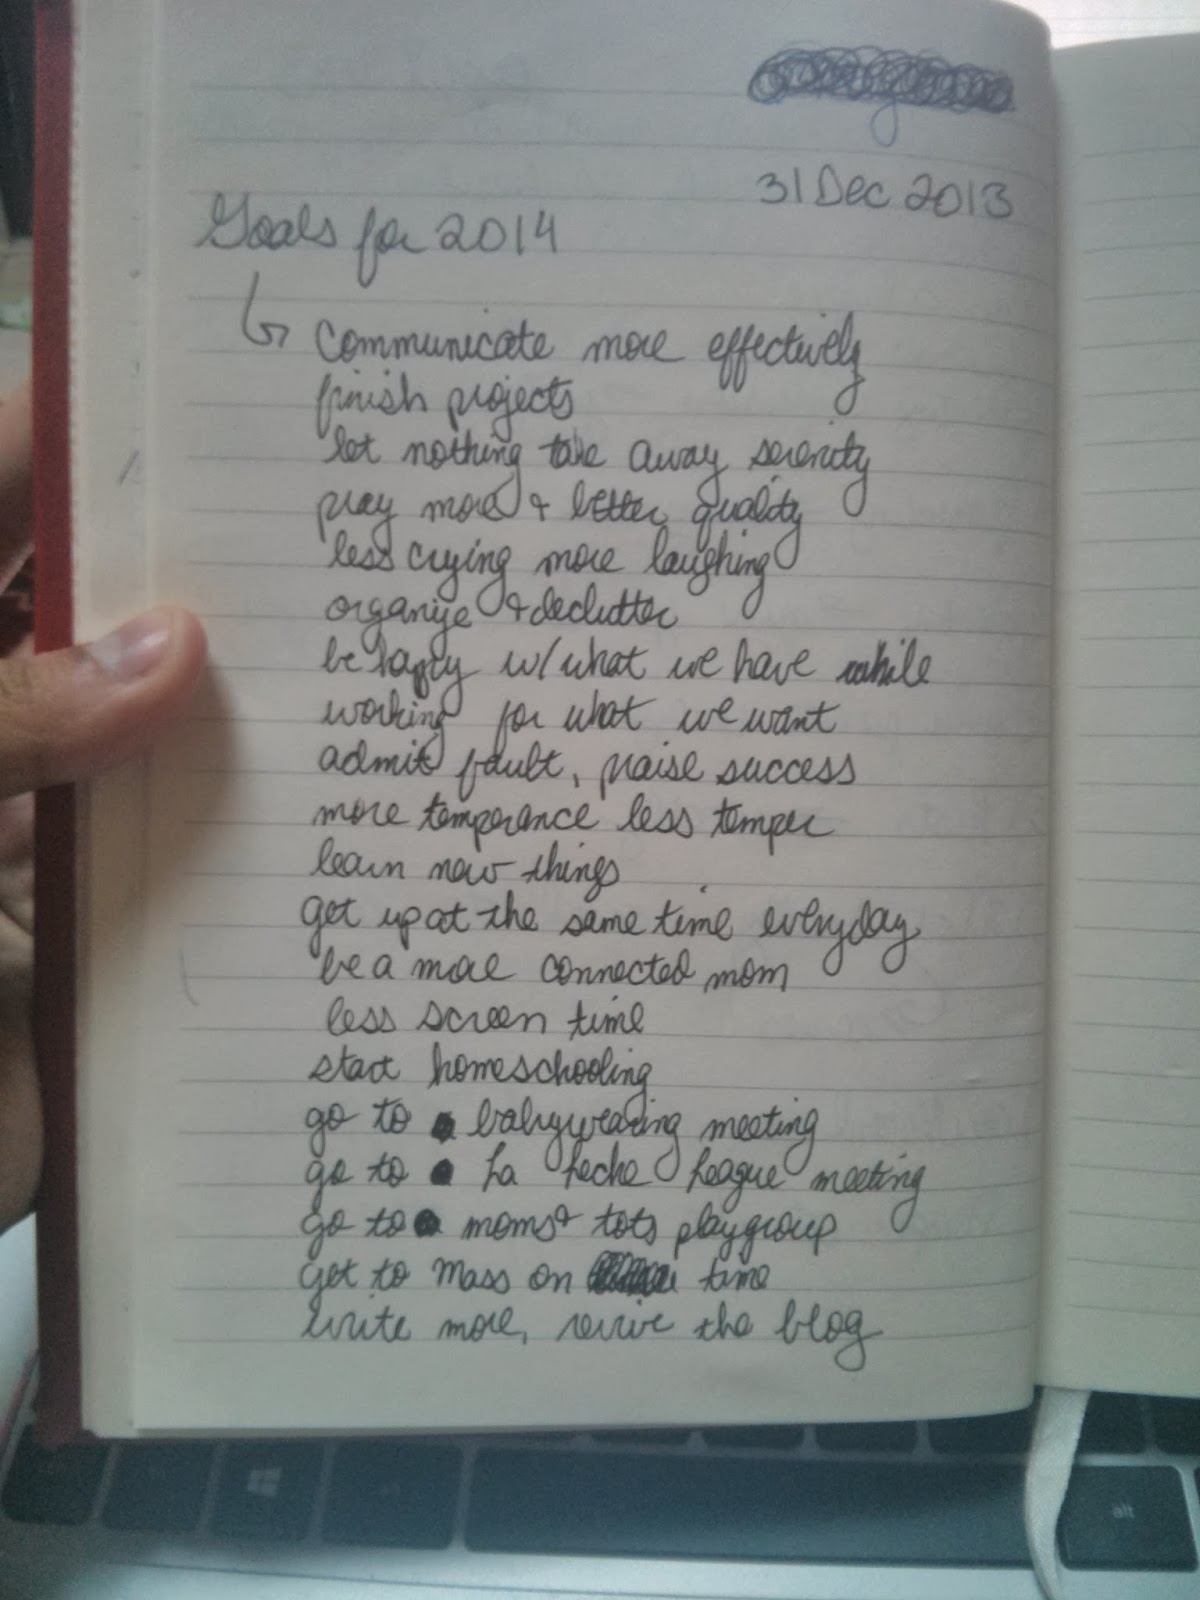 31 Dec 2013
Goals for 2014
communicate more effectively
finish projects
let nothing take away serenity
pray more & better quality
less crying more laughing
organize & declutter
be happy w/ what we have while
working for what we want
admit fault, praise success
more temperance less temper
learn new things
get up at the same time everyday
be a more connected mom
less screen time
start homeschooling
go to babywearing meeting
go to La Leche League meeting
go to moms & tots playgroup
get to Mass on time
write more, revive the blog
alt